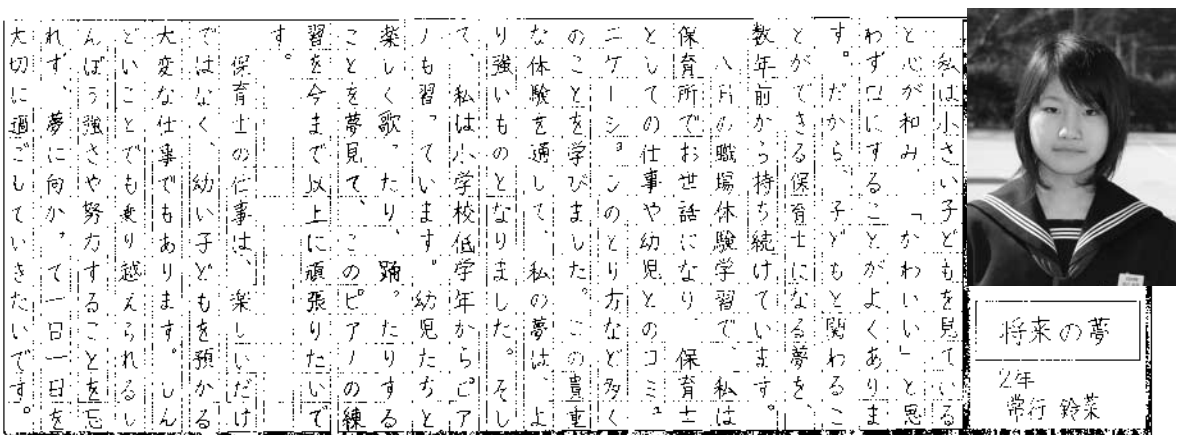 将来の夢
2年
常行 鈴菜
私は小さい子どもを見ている
と心が和み、「かわいい」と思
わず口にすることがよくありま
す。だから、子どもと関わるこ
とができる保育士になる夢を、
数年前から持ち続けています。
八月の職場体験学習で、私は
保育所でお世話になり、保育士
としての仕事や幼児とのコミュ
ニケーションのとり方など多く
のことを学びました。この貴重
な体験を通して、私の夢は、よ
り強いものとなりました。そし
て、私は小学校低学年からピア
ノも習っています。幼児たちと
楽しく歌ったり、踊ったりする
ことを夢見て、このピアノの練
習を今まで以上に頑張りたいで
す。
保育士の仕事は、楽しいだけ
ではなく、幼い子どもを預かる
大変な仕事でもあります。しん
どいことでも乗り越えられるし
んぼう強さや努力することを忘
れず、夢に向かって一日一日を
大切に過ごしていきたいです。